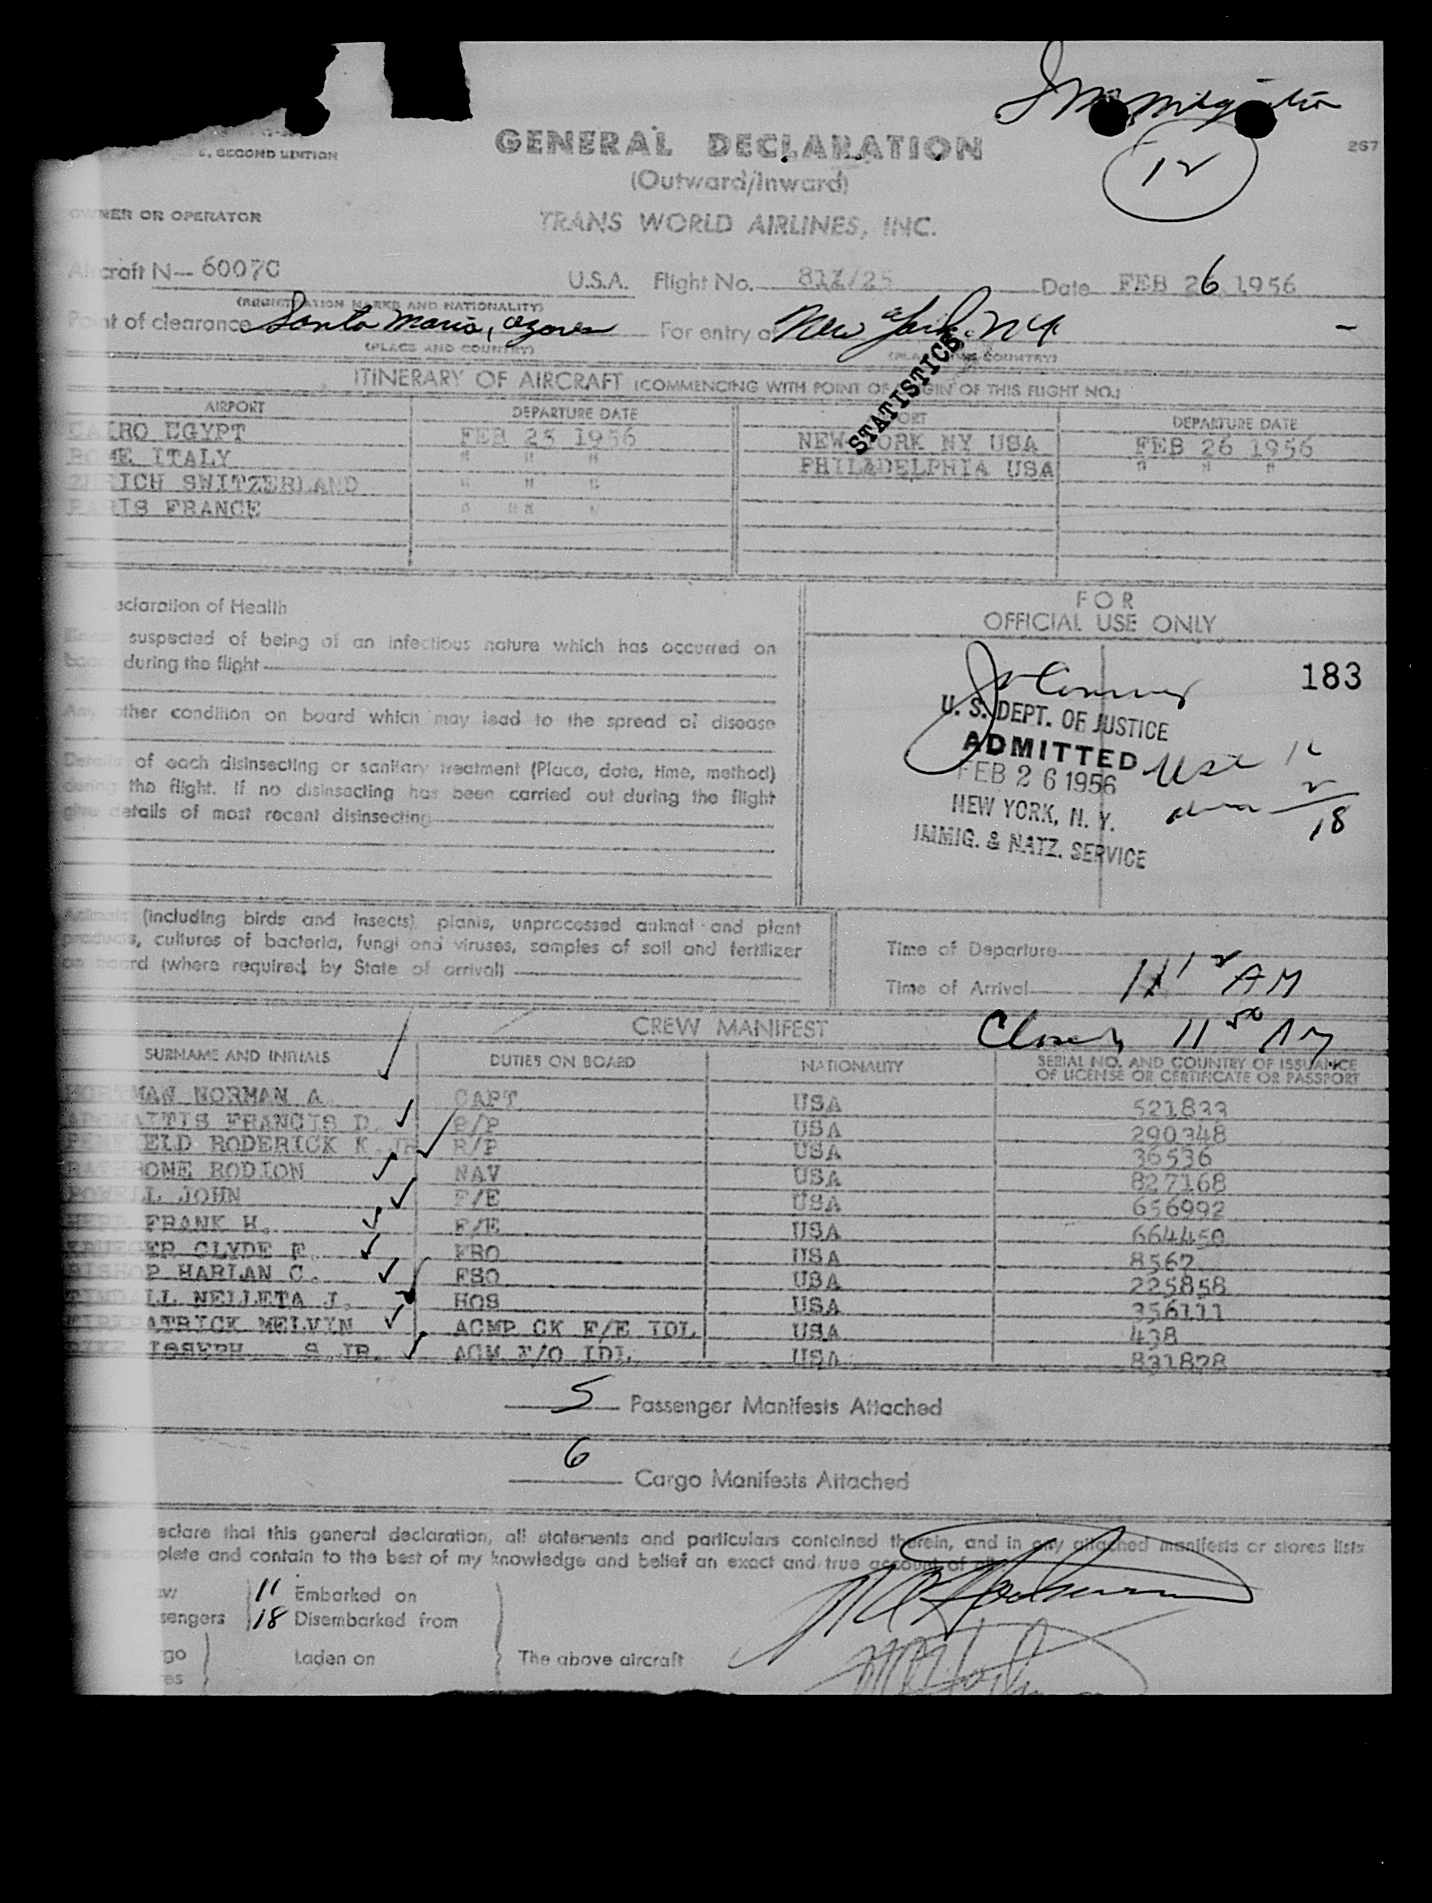 Immigration
12
SECOND EDITION
GENERAL DECLARATION
267
(Outward/Inward)
OWNER OR OPERATOR
TRANS WORLD AIRLINES, INC.
Aircraft N— 6007C U.S.A. Flight No. 81Z/25 Date FEB 26 1956
(REGISTRATION MARKS AND NATIONALITY)
Point of clearance Santa Maria, Azores For entry at New York, NY
(PLACE AND COUNTRY) (PLACE AND COUNTRY)
STATISTICS
ITINERARY OF AIRCRAFT (COMMENCING WITH POINT OF ORIGIN OF THIS FLIGHT NO.)
AIRPORT DEPARTURE DATE AIRPORT DEPARTURE DATE
CAIRO EGYPT FEB 25 1956 NEW YORK NY USA FEB 26 1956
ROME ITALY " " " PHILADELPHIA USA " " "
ZURICH SWITZERLAND " " "
PARIS FRANCE " " " "
Declaration of Health
suspected of being of an infectious nature which has occurred on
board during the flight
Any other condition on board which may lead to the spread of disease
Details of each disinsecting or sanitary treatment (Place, date, time, method)
during the flight. If no disinsecting has been carried out during the flight
give details of most recent disinsecting
FOR
OFFICIAL USE ONLY
183
U. S. DEPT. OF JUSTICE
ADMITTED
FEB 26 1956
NEW YORK, N. Y.
IMMIG. & NATZ. SERVICE
USC 16
alien 2
18
Animals (including birds and insects), plants, unprocessed animal and plant
products, cultures of bacteria, fungi and viruses, samples of soil and fertilizer
on board (where required by State of arrival)
Time of Departure
Time of Arrival 11 12 AM
Closed 11 50 AM
CREW MANIFEST
SURNAME AND INITIALS DUTIES ON BOARD NATIONALITY SERIAL NO. AND COUNTRY OF ISSUANCE
OF LICENSE OR CERTIFICATE OR PASSPORT
MAN NORMAN A CAPT USA 521833
AITIS FRANCIS D. USA 290348
ELD RODERICK K. JR R/P USA 36536
BONE RODION NAV USA 827168
POWELL JOHN F/E USA 656992
FRANK H. F/E USA 664450
KRUEGER CLYDE F. FRO USA 8562
BISHOP HARLAN C. FSO USA 225858
TINDALL NELLETA J. HOS USA 356111
KIRKPATRICK MELVIN ACMP CK F/E IDL USA 438
JOSEPH S JR. ACM F/O IDL USA 831828
5 Passenger Manifests Attached
6 Cargo Manifests Attached
declare that this general declaration, all statements and particulars contained therein, and in any attached manifests or stores lists
complete and contain to the best of my knowledge and belief an exact and true account of all
11 Embarked on
sengers 18 Disembarked from
go Laden on The above aircraft
es